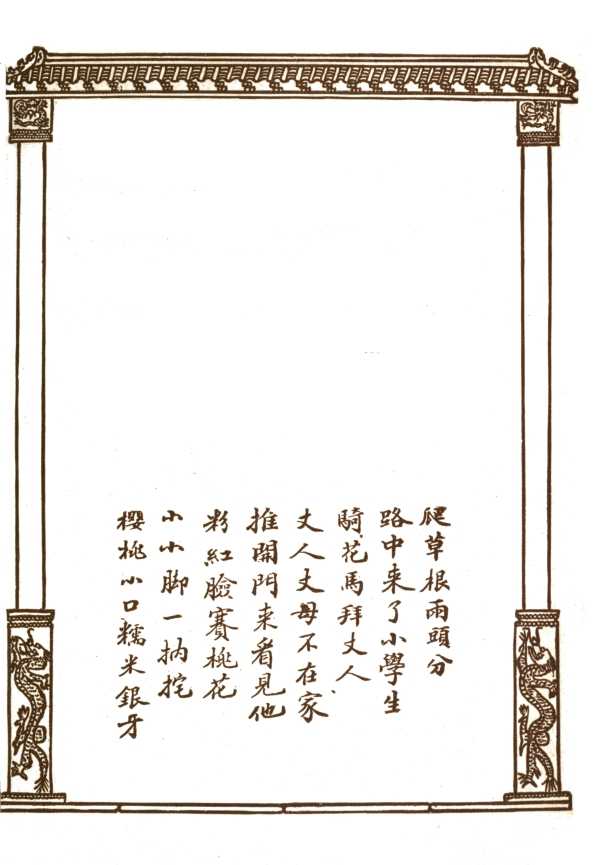 爬草根兩頭分
路中来了小學生
騎花馬拜丈人
丈人丈母不在家
推開門来看見他
粉紅臉賽桃花
小小脚一抐挓
櫻桃小口糯米銀牙